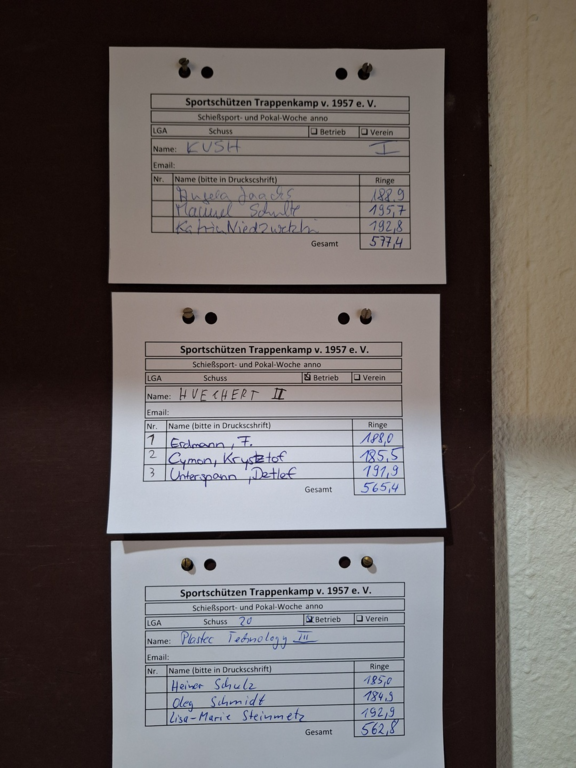 Sportschützen Trappenkamp v. 1957 e. V.
Schießsport- und Pokal-Woche anno
LGA Schuss ☐ Betrieb ☐ Verein
Name: KVSH I
Email:
Nr. Name (bitte in Druckscshrift) Ringe
Angela 188,9
Manuel Schulz 195,7
Katrin 192,8
Gesamt 577,4
Sportschützen Trappenkamp v. 1957 e. V.
Schießsport- und Pokal-Woche anno
LGA Schuss ☒ Betrieb ☐ Verein
Name: HUECHERT II
Email:
Nr. Name (bitte in Druckscshrift) Ringe
1 Erdmann, F. 188,0
2 Cymon, Krysztof 185,5
3 Unterspann, Detlef 191,9
Gesamt 565,4
Sportschützen Trappenkamp v. 1957 e. V.
Schießsport- und Pokal-Woche anno
LGA Schuss 20 ☒ Betrieb ☐ Verein
Name: Plastec Technology III
Email:
Nr. Name (bitte in Druckscshrift) Ringe
Heiner Schulz 185,0
Oleg Schmidt 184,9
Lisa-Marie Steinmetz 192,9
Gesamt 562,8